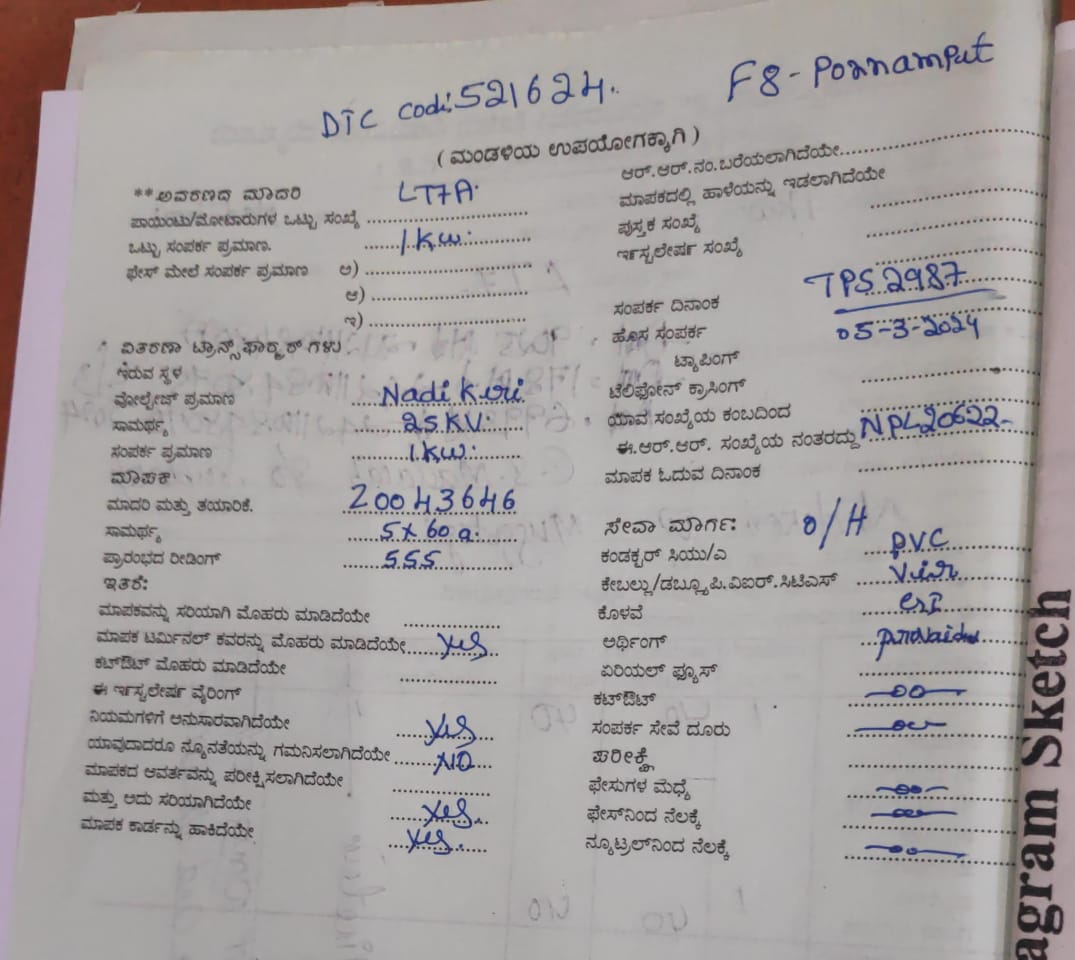 DTC Codi: 521624. F8 - Ponnampet
( ಮಂಡಳಿಯ ಉಪಯೋಗಕ್ಕಾಗಿ )
**ಅವರಣದ ಮಾದರಿ LT7A.
ಪಾಯಿಂಟು/ಮೋಟಾರುಗಳ ಒಟ್ಟು ಸಂಖ್ಯೆ
ಒಟ್ಟು ಸಂಪರ್ಕ ಪ್ರಮಾಣ. 1 Kw.
ಫೇಸ್ ಮೇಲೆ ಸಂಪರ್ಕ ಪ್ರಮಾಣ ಅ)
ಆ)
ಇ)
ವಿತರಣಾ ಟ್ರಾನ್ಸ್‌ಫಾರ್ಮರ್ ಗಳು
ಇರುವ ಸ್ಥಳ
ವೋಲ್ಟೇಜ್ ಪ್ರಮಾಣ Nadikeri
ಸಾಮರ್ಥ್ಯ 25 KV.
ಸಂಪರ್ಕ ಪ್ರಮಾಣ 1 Kw.
ಮಾಪಕ
ಮಾದರಿ ಮತ್ತು ತಯಾರಿಕೆ. 20043646
ಸಾಮರ್ಥ್ಯ 5x60 a.
ಪ್ರಾರಂಭದ ರೀಡಿಂಗ್ 555
ಇತರೆ:
ಮಾಪಕವನ್ನು ಸರಿಯಾಗಿ ಮೊಹರು ಮಾಡಿದೆಯೇ
ಮಾಪಕ ಟರ್ಮಿನಲ್ ಕವರನ್ನು ಮೊಹರು ಮಾಡಿದೆಯೇ Yes
ಕಟ್‌ಔಟ್ ಮೊಹರು ಮಾಡಿದೆಯೇ
ಈ ಇನ್ಸ್ಟಲೇಷನ್ ವೈರಿಂಗ್
ನಿಯಮಗಳಿಗೆ ಅನುಸಾರವಾಗಿದೆಯೇ Yes
ಯಾವುದಾದರೂ ನ್ಯೂನತೆಯನ್ನು ಗಮನಿಸಲಾಗಿದೆಯೇ NO
ಮಾಪಕದ ಆವರ್ತವನ್ನು ಪರೀಕ್ಷಿಸಲಾಗಿದೆಯೇ
ಮತ್ತು ಅದು ಸರಿಯಾಗಿದೆಯೇ Yes.
ಮಾಪಕ ಕಾರ್ಡನ್ನು ಹಾಕಿದೆಯೇ Yes.
ಆರ್.ಆರ್.ನಂ.ಬರೆಯಲಾಗಿದೆಯೇ
ಮಾಪಕದಲ್ಲಿ ಹಾಳೆಯನ್ನು ಇಡಲಾಗಿದೆಯೇ
ಪುಸ್ತಕ ಸಂಖ್ಯೆ
ಇನ್ಸ್ಟಲೇಷನ್ ಸಂಖ್ಯೆ
TPS 2987
ಸಂಪರ್ಕ ದಿನಾಂಕ
ಹೊಸ ಸಂಪರ್ಕ 05-3-2024
ಟ್ಯಾಪಿಂಗ್
ಟೆಲಿಫೋನ್ ಕ್ರಾಸಿಂಗ್
ಯಾವ ಸಂಖ್ಯೆಯ ಕಂಬದಿಂದ
ಈ.ಆರ್.ಆರ್. ಸಂಖ್ಯೆಯ ನಂತರದ್ದು NPL20622
ಮಾಪಕ ಓದುವ ದಿನಾಂಕ
ಸೇವಾ ಮಾರ್ಗ: O/H
ಕಂಡಕ್ಟರ್ ಸಿಯು/ಎ PVC
ಕೇಬಲ್ಲು/ಡಬ್ಲ್ಯೂ.ಪಿ.ವಿಐರ್.ಸಿಟಿಎಸ್
ಕೊಳವೆ
ಅರ್ಥಿಂಗ್
ಏರಿಯಲ್ ಫ್ಯೂಸ್
ಕಟ್‌ಔಟ್
ಸಂಪರ್ಕ ಸೇವೆ ದೂರು
ಪರೀಕ್ಷೆ
ಫೇಸುಗಳ ಮಧ್ಯೆ
ಫೇಸ್‌ನಿಂದ ನೆಲಕ್ಕೆ
ನ್ಯೂಟ್ರಲ್‌ನಿಂದ ನೆಲಕ್ಕೆ
agram Sketch